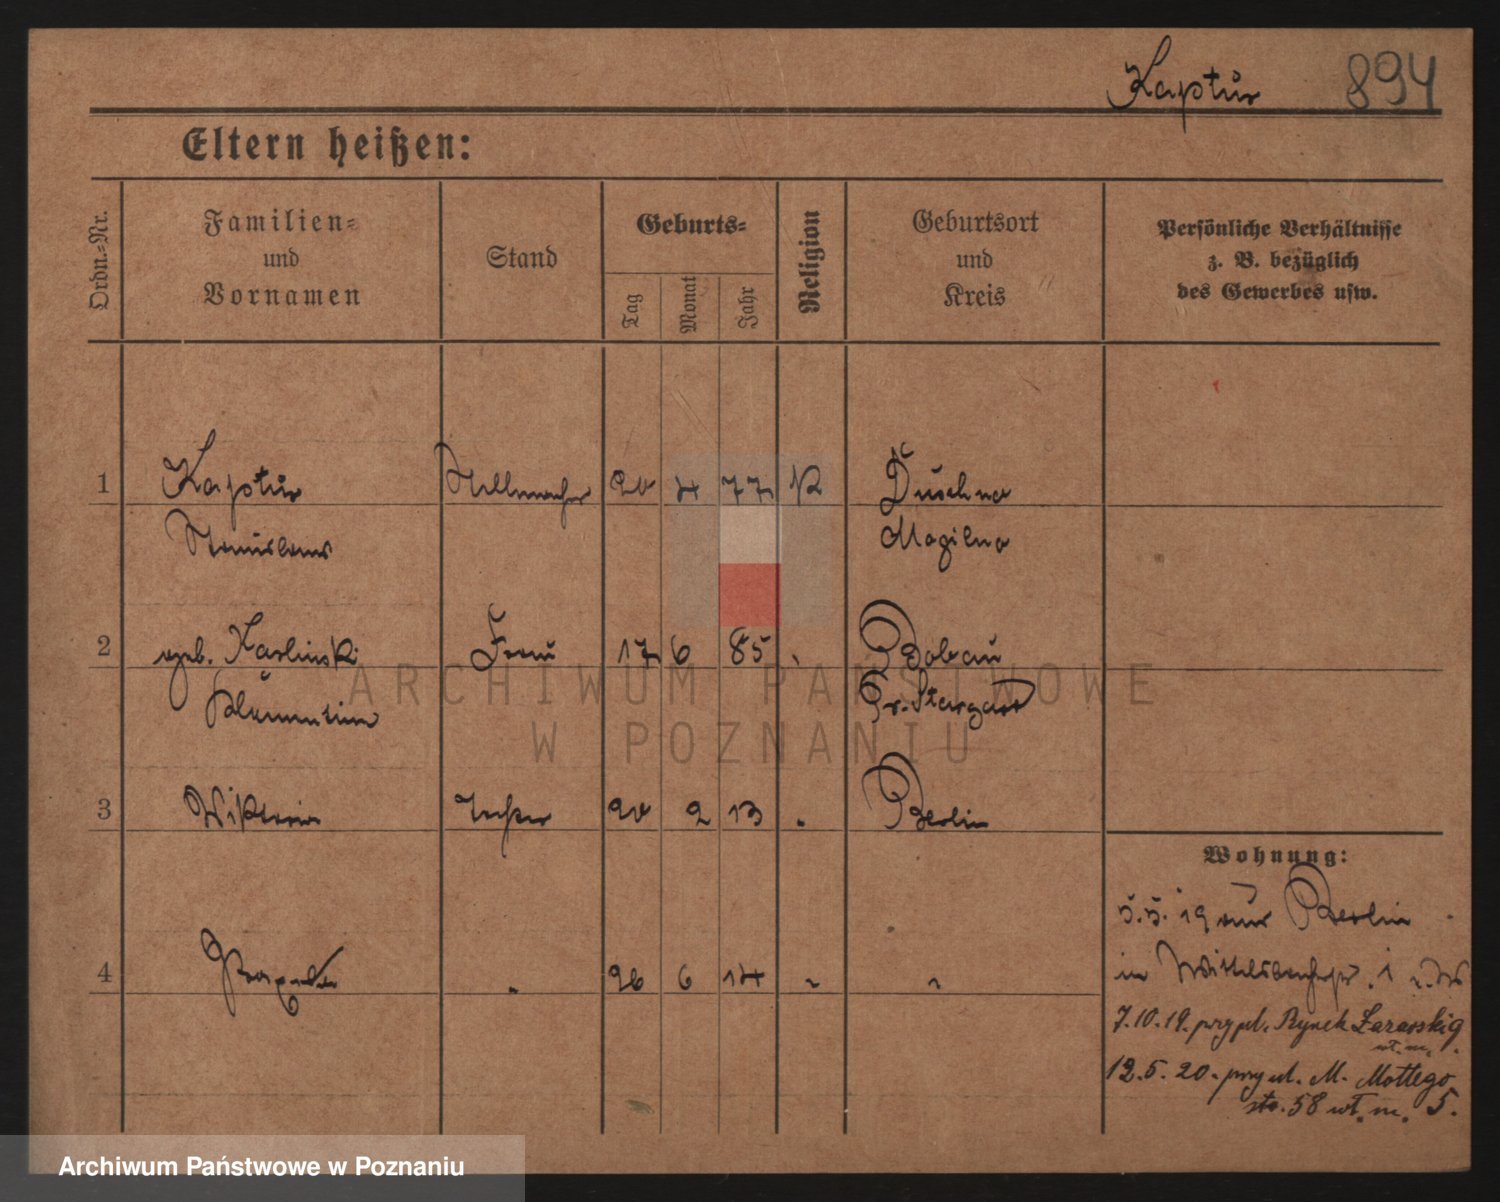 Kaptur 894
Eltern heißen:
Ordn.=Nr.
Familien=
und
Vornamen
Stand
Geburts=
Tag
Monat
Jahr
Religion
Geburtsort
und
Kreis
Persönliche Verhältnisse
z. B. bezüglich
des Gewerbes usw.
1 Kaptur Stellmacher 20 4 77 K Duschno
Stanislaus Mogilno
2 geb. Karlinski Frau 17 6 85 Bobau
Pr. Stargard
3 Wiktoria Tochter 20 2 13 Berlin
4 26 6 14
Wohnung:
5.5.19 aus Berlin
in 1
7.10.19. przypl. Rynek Łazarski 9
wt. m.
12.5.20. przy ul. M. Mottego
sto. 58 wt. m. 5.
ARCHIWUM PAŃSTWOWE
W POZNANIU
Archiwum Państwowe w Poznaniu